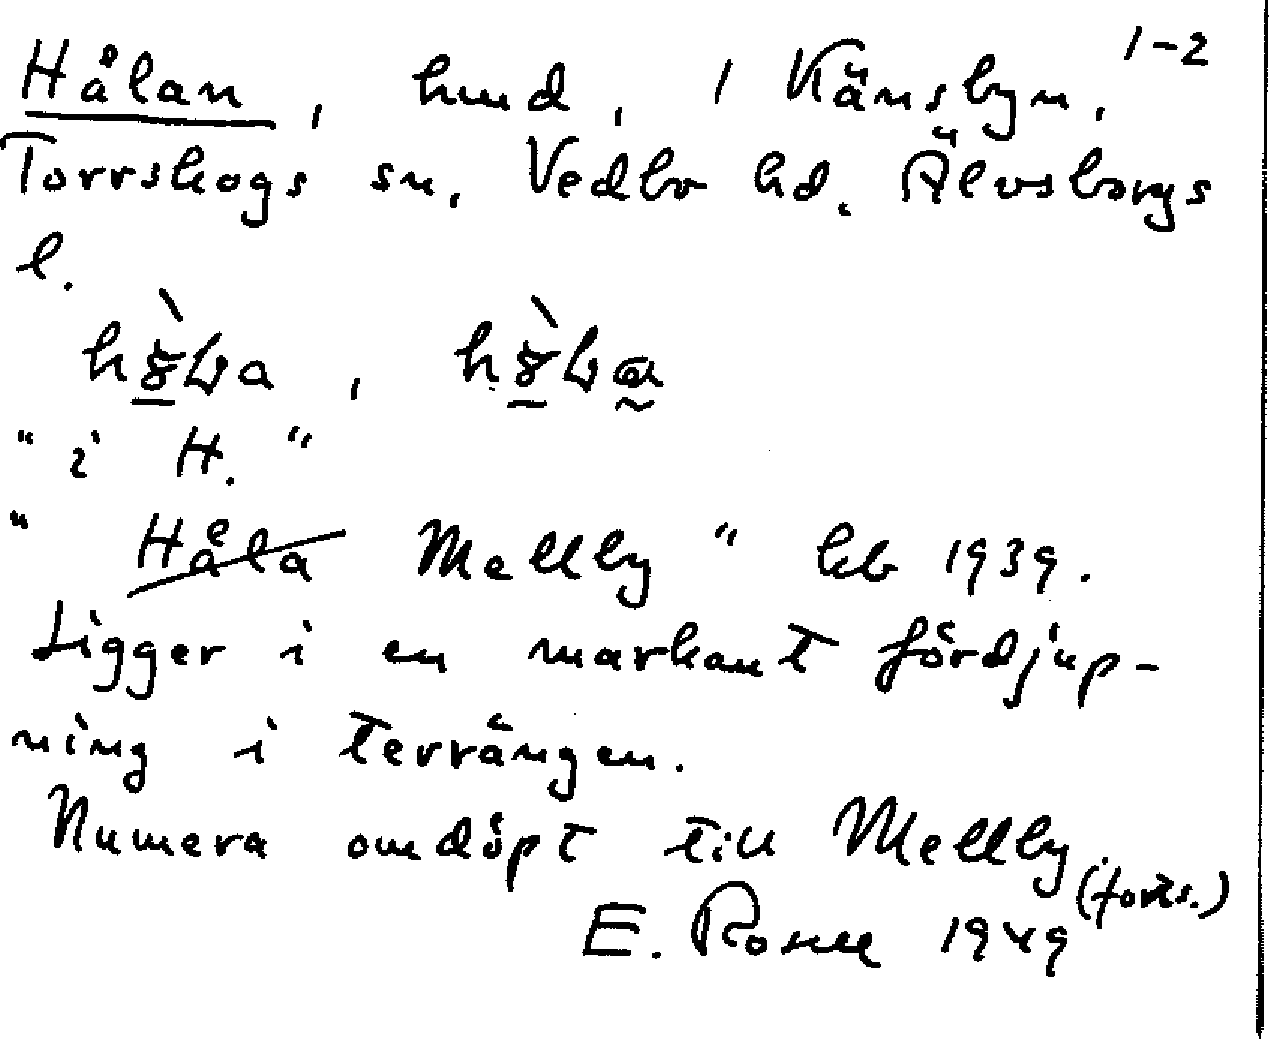 1-2
Hålan, hmd, 1 Känsbyn,
Torrskogs sn, Vedbo hd. Älvsborgs
l.
"i H."
" Håla Mellby" kb 1939.
Ligger i en markant fördjup-
ning i terrängen.
Numera omdöpt till Mellby
(forts.)
E. Rosell 1949